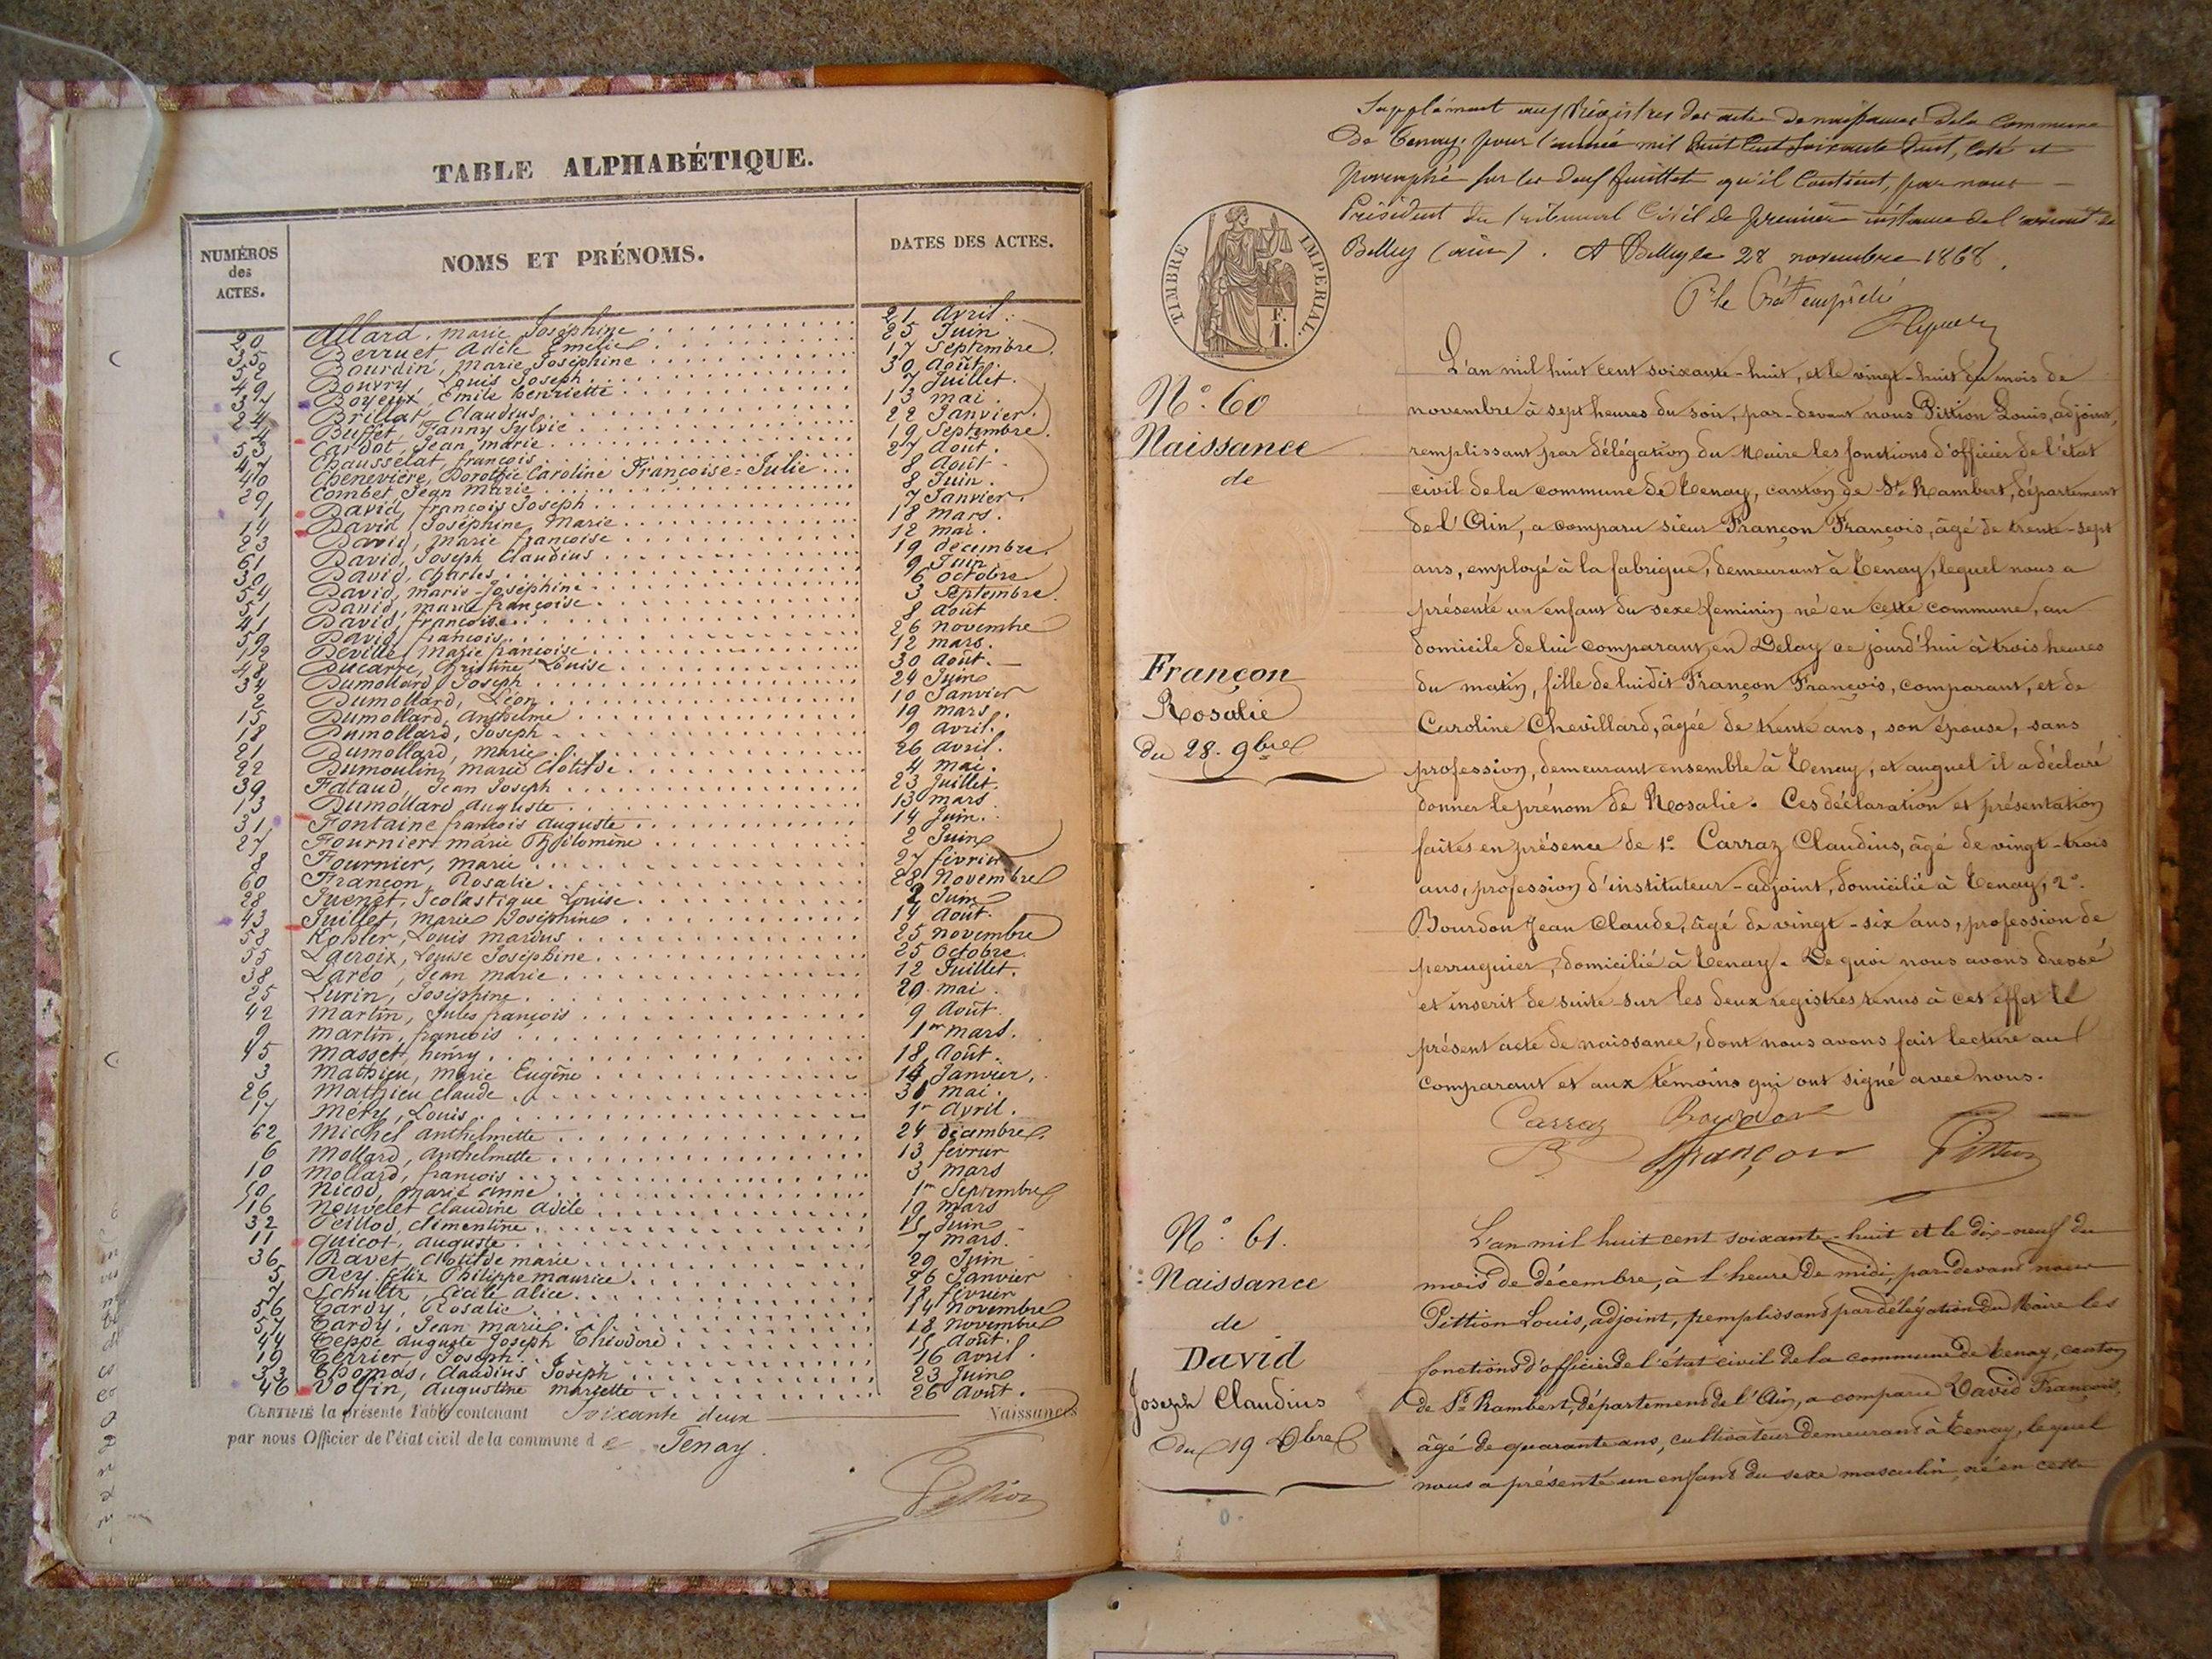 TABLE ALPHABÉTIQUE.
NUMÉROS des ACTES.
NOMS ET PRÉNOMS.
DATES DES ACTES.
20 Allard, marie Joséphine 21 Avril.
35 Berruet Adèle Emélie 25 Juin
52 Bourdin, Marie Joséphine 17 Septembre.
49 Bouvry, Louis Joseph 30 Août.
37 Boyeux, Emile henriette 7 Juillet.
24 Brillat Claudius 13 mai.
4 Buffet, Fanny Sylvie 22 Janvier.
53 Cardot, Jean marie 19 Septembre.
47 Chausselat, françois 27 Août.
40 Chenevière, Dorothé Caroline Françoise-Julie 8 Août
29 Combet, Jean Marie 8 Juin.
1 David, françois Joseph 7 Janvier.
14 David, Joséphine Marie 18 mars.
23 David, marie françoise 12 mai.
61 David, Joseph Claudius 19 décembre.
30 David, Charles 9 Juin
54 David, marie-Joséphine 6 octobre
51 David, marie françoise 3 Septembre.
41 David, françoise 8 août
59 David, françois 26 novembre
12 Deville, Marie françoise 12 mars.
48 Ducarre, Christine Louise 30 Août.
34 Dumollard, Joseph 24 Juin
2 Dumollard, Léon 10 Janvier
15 Dumollard, Anthelme 19 mars.
18 Dumollard, Joseph 9 avril.
21 Dumollard, Marie 26 avril.
22 Dumoulin, Marie Clotilde 4 mai.
39 Fataud, Jean Joseph 23 Juillet
13 Dumollard, Auguste 13 mars
31 Fontaine françois auguste 14 Juin.
27 Fournier marie Philomène 2 Juin
8 Fournier, marie 27 février
60 Françon, Rosalie 28 Novembre
28 Juenet, Scolastique Louise 2 Juin
43 Juillet, Marie Joséphine 14 Août.
58 Kohler, Louis Marius 25 novembre
55 Lacroix, Louise Joséphine 25 Octobre
38 Laréo, Jean marie 12 Juillet.
25 Lurin, Joséphine 20 mai.
42 Martin, Jules françois 9 Août
9 Martin, françois 1er mars.
45 Masset, henry 18 Août.
3 Mathieu, Marie Eugène 14 Janvier.
26 Mathieu Claude 31 mai.
17 Méry, Louis 1er Avril.
62 Michel anthelmette 24 décembre.
6 Mollard, Anthelmette 13 février
10 Mollard, françois 3 mars
50 Nicod, Marie Anne 1er Septembre
16 Nouvelet Claudine Adèle 19 mars
32 Peillod, Clémentine 15 Juin
11 Quicot, Auguste 7 mars.
36 Ravet Clotilde marie 29 Juin
5 Rey félix Philippe maurice 26 Janvier
7 Schultz, Cécile Alice 18 février
56 Tardy, Rosalie 14 Novembre
57 Tardy, Jean marie 18 novembre
44 Teppe Auguste Joseph Théodore 15 Août.
19 Terrier, Joseph 16 Avril.
33 Thomas, Claudius Joseph 23 Juin
46 Volfin, Augustine Mariette 26 Août.
CERTIFIÉ la présente Table contenant Soixante deux Naissances
par nous Officier de l'état civil de la commune de Tenay.
Pittion
Supplément aux Régistres des actes de naissances de la Commune
de Tenay, pour l'année mil huit cent soixante huit, coté et
paraphé sur les deux feuillets qu'il contient, par nous
Président du tribunal Civil de première instance de l'arrond.t de
Belley (ain). A Belley le 28 novembre 1868.
P. le Prés.t empêché
TIMBRE IMPÉRIAL
F. 1.
N.° 60
Naissance
de
Françon
Rosalie
du 28. 9bre
L'an mil huit cent soixante-huit, et le vingt-huit du mois de
novembre à sept heures du soir, par-devant nous Pittion Louis, adjoint,
remplissant par délégation du Maire les fonctions d'officier de l'état
civil de la commune de Tenay, canton de St Rambert, département
de l'Ain, a comparu sieur Françon François, âgé de trente-sept
ans, employé à la fabrique, demeurant à Tenay, lequel nous a
présenté un enfant du sexe feminin né en cette commune, au
domicile de lui comparant, en Delay ce jourd'hui à trois heures
du matin, fille de luidit Françon François, comparant, et de
Caroline Chevillard, âgée de trente ans, son épouse, sans
profession, demeurant ensemble à Tenay, et auquel il a déclaré
donner le prénom de Rosalie. Ces déclaration et présentation
faites en présence de 1° Carraz Claudius, âgé de vingt-trois
ans, profession d'instituteur-adjoint, domicilié à Tenay, 2°
Bourdon Jean Claude, âgé de vingt-six ans, profession de
perruquier, domicilié à Tenay. De quoi nous avons dressé
et inscrit de suite sur les deux registres tenus à cet effet le
présent acte de naissance, dont nous avons fait lecture au
comparant et aux témoins qui ont signé avec nous.
Carraz Bourdon
françon Pittion
N.° 61.
Naissance
de
David
Joseph Claudius
du 19 Xbre
L'an mil huit cent soixante-huit et le dix-neuf du
mois de décembre, à l'heure de midi, par devant nous
Pittion Louis, adjoint, remplissant par délégation du Maire les
fonctions d'officier de l'état civil de la commune de Tenay, canton
de St Rambert, département de l'Ain, a comparu David François,
âgé de quarante ans, cultivateur demeurant à Tenay, lequel
nous a présenté un enfant du sexe masculin, né en cette